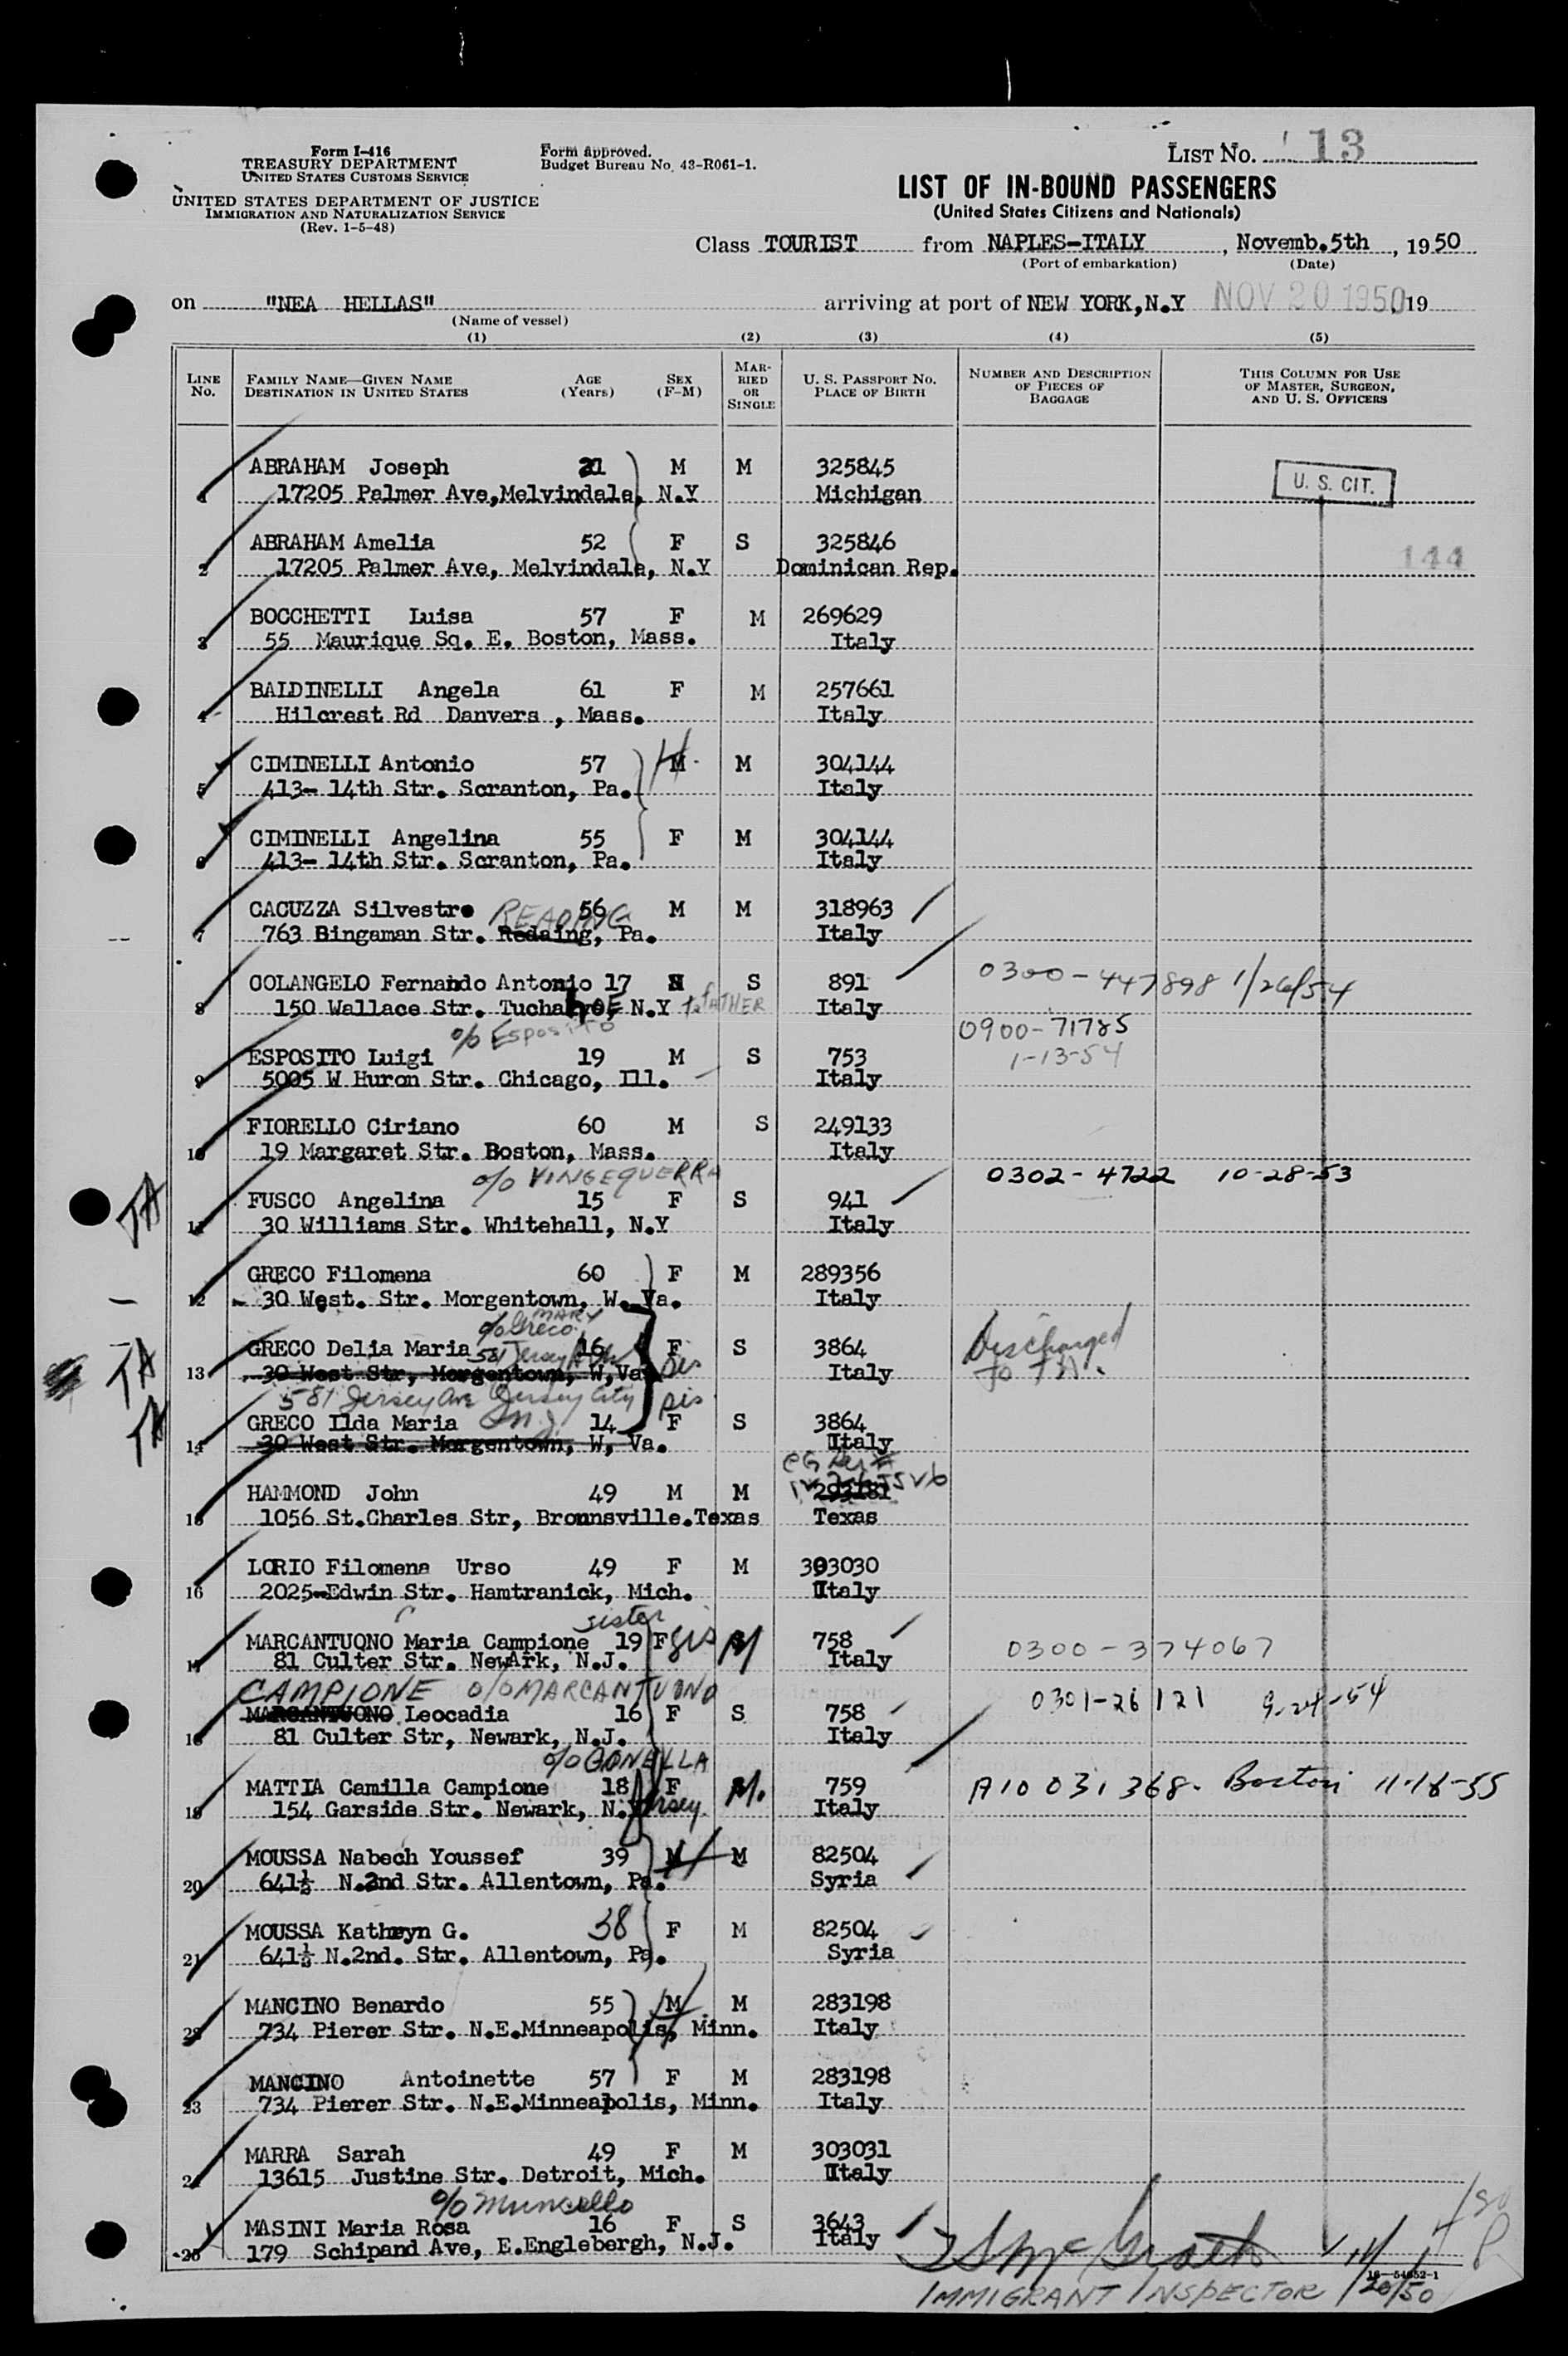 Form I-416
TREASURY DEPARTMENT
UNITED STATES CUSTOMS SERVICE
UNITED STATES DEPARTMENT OF JUSTICE
IMMIGRATION AND NATURALIZATION SERVICE
(Rev. 1-5-48)
Form approved.
Budget Bureau No. 43-R061-1.
LIST NO. 13
LIST OF IN-BOUND PASSENGERS
(United States Citizens and Nationals)
Class TOURIST from NAPLES-ITALY, Novemb.5th, 1950
(Port of embarkation) (Date)
on "NEA HELLAS" arriving at port of NEW YORK,N.Y NOV 20 1950 19
(Name of vessel)
(1) (2) (3) (4) (5)
LINE NO. FAMILY NAME—GIVEN NAME DESTINATION IN UNITED STATES AGE (Years) SEX (F-M) MARRIED OR SINGLE U. S. PASSPORT NO. PLACE OF BIRTH NUMBER AND DESCRIPTION OF PIECES OF BAGGAGE THIS COLUMN FOR USE OF MASTER, SURGEON, AND U. S. OFFICERS
ABRAHAM Joseph 21 M M 325845 U. S. CIT.
1 17205 Palmer Ave,Melvindale, N.Y Michigan
ABRAHAM Amelia 52 F S 325846 144
2 17205 Palmer Ave, Melvindale, N.Y Dominican Rep.
BOCCHETTI Luisa 57 F M 269629
3 55 Maurique Sq. E. Boston, Mass. Italy
BALDINELLI Angela 61 F M 257661
4 Hilcrest Rd Danvers , Mass. Italy
CIMINELLI Antonio 57 M M 304144
5 413- 14th Str. Scranton, Pa. Italy
CIMINELLI Angelina 55 F M 304144
6 413- 14th Str. Scranton, Pa. Italy
CACUZZA Silvestro READING 56 M M 318963
7 763 Bingaman Str. Redaing, Pa. Italy
COLANGELO Fernando Antonio 17 M S 891 0300-447898 1/26/54
8 150 Wallace Str. Tuchahoe, N.Y to FATHER Italy
c/o ESPOSITO 0900-71785
ESPOSITO Luigi 19 M S 753 1-13-54
9 5005 W Huron Str. Chicago, Ill. Italy
FIORELLO Ciriano 60 M S 249133
10 19 Margaret Str. Boston, Mass. Italy
c/o VINGEQUERRA 0302-4722 10-28-53
TA FUSCO Angelina 15 F S 941
11 30 Williams Str. Whitehall, N.Y Italy
GRECO Filomena 60 F M 289356
12 30 West. Str. Morgentown, W. Va. Italy
c/o MARY Greco
TA GRECO Delia Maria 16 F S 3864 Discharged
13 30 West Str, Morgentown, W,Va. Sis Italy to TA.
581 Jersey Ave Jersey City sis
TA GRECO Ilda Maria N.J. 14 F S 3864
14 30 West Str. Morgentown, W, Va. Italy
HAMMOND John 49 M M 293181
15 1056 St.Charles Str, Brounsville.Texas Texas
LORIO Filomena Urso 49 F M 303030
16 2025-Edwin Str. Hamtranick, Mich. Italy
sister
MARCANTUONO Maria Campione 19 F sis M 758 0300-374067
17 81 Culter Str. Newark, N.J. Italy
CAMPIONE c/o MARCANTUONO 0301-26121 9-24-54
MARCANTUONO Leocadia 16 F S 758
18 81 Culter Str, Newark, N.J. Italy
c/o GONELLA
MATTIA Camilla Campione 18 F M. 759 A10 031 368. Boston 11-16-55
19 154 Garside Str. Newark, N. Jersey. Italy
MOUSSA Nabech Youssef 39 M M 82504
20 641½ N.2nd Str. Allentown, Pa. Syria
MOUSSA Kathryn G. 38 F M 82504
21 641½ N.2nd. Str. Allentown, Pa. Syria
MANCINO Benardo 55 M M 283198
22 734 Pierer Str. N.E.Minneapolis, Minn. Italy
MANCINO Antoinette 57 F M 283198
23 734 Pierer Str. N.E.Minneapolis, Minn. Italy
MARRA Sarah 49 F M 303031
24 13615 Justine Str. Detroit, Mich. Italy
c/o Muncello
MASINI Maria Rosa 16 F S 3643
25 179 Schipand Ave, E.Englebergh, N.J. Italy
16—54652-1
IMMIGRANT INSPECTOR 11/20/50